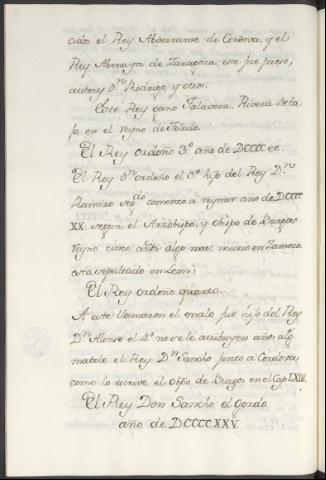 cido el Rey Abderrame de Cordova, y el
Rey Abenaya de Zaragoza, este fue preso,
autor y Dn Rodrigo, y otros.
Este Rey gano Talavera, Rivera de Ta
jo en el reyno de Toledo.
El Rey ordoño 3º año de DCCCC
El Rey Dn ordoño el 3º hijo del Rey Dn
Ramiro segdo comenzo á reynar año de DCCCC
XX. segun el Arzobispo, y obispo de Burgos
reyno cinco años algo mas, murio en Zamora
está sepultado en Leon.
El Rey ordoño quarto.
A este llamaron el malo fue hijo del Rey
Dn Alonso el 4º no se le atribuyen años alg
matole el Rey Dn Sancho junto á Cordova,
como lo escrive el Obpo de Burgos en el Cap LXIII.
El Rey Don Sancho el Gordo
año de DCCCCXXV.